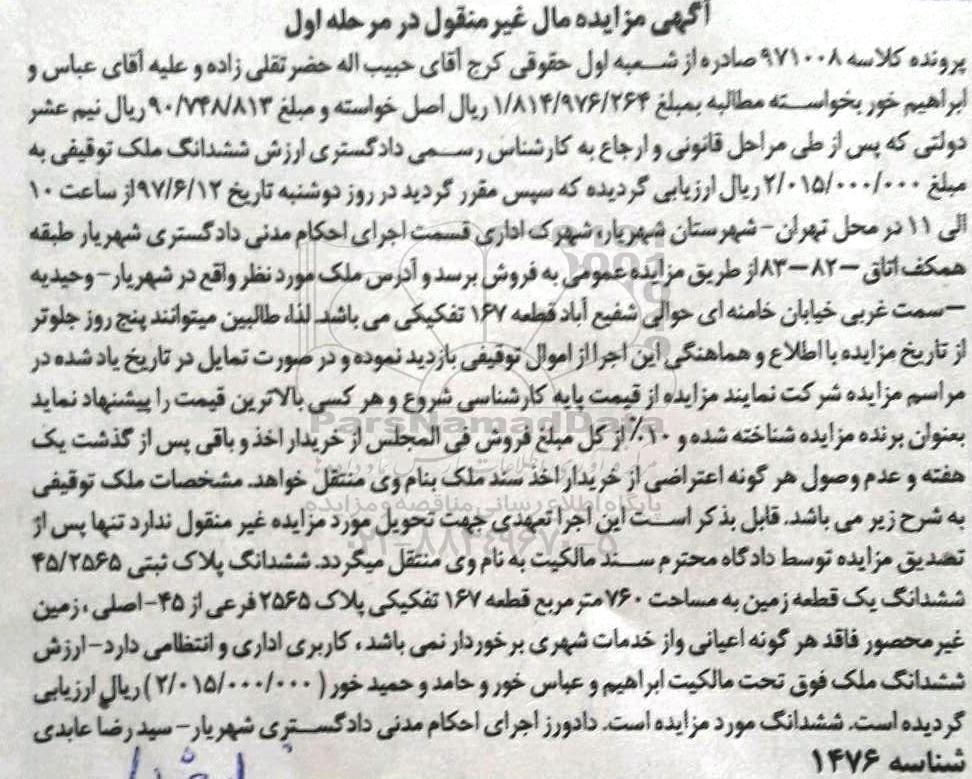 آگهی مزایده مال غیر منقول در مرحله اول
پرونده کلاسه ۹۷۱۰۰۸ صادره از شعبه اول حقوقی کرج آقای حبیب اله حضرتقلی زاده و علیه آقای عباس و
ابراهیم خور بخواسته مطالبه بمبلغ ۱/۸۱۴/۹۷۶/۲۶۴ ریال اصل خواسته و مبلغ ۹۰/۷۴۸/۸۱۳ ریال نیم عشر
دولتی که پس از طی مراحل قانونی و ارجاع به کارشناس رسمی دادگستری ارزش ششدانگ ملک توقیفی به
مبلغ ۲/۰۱۵/۰۰۰/۰۰۰ ریال ارزیابی گردیده که سپس مقرر گردید در روز دوشنبه تاریخ ۹۷/۶/۱۲ از ساعت ۱۰
الی ۱۱ در محل تهران- شهرستان شهریار، شهرک اداری قسمت اجرای احکام مدنی دادگستری شهریار طبقه
همکف اتاق –۸۲–۸۳ از طریق مزایده عمومی به فروش برسد و آدرس ملک مورد نظر واقع در شهریار- وحیدیه
–سمت غربی خیابان خامنه ای حوالی شفیع آباد قطعه ۱۶۷ تفکیکی می باشد. لذا، طالبین میتوانند پنج روز جلوتر
از تاریخ مزایده با اطلاع و هماهنگی این اجرا از اموال توقیفی بازدید نموده و در صورت تمایل در تاریخ یاد شده در
مراسم مزایده شرکت نمایند مزایده از قیمت پایه کارشناسی شروع و هر کسی بالاترین قیمت را پیشنهاد نماید
بعنوان برنده مزایده شناخته شده و ۱۰٪ از کل مبلغ فروش فی المجلس از خریدار اخذ و باقی پس از گذشت یک
هفته و عدم وصول هر گونه اعتراضی از خریدار اخذ سند ملک بنام وی منتقل خواهد. مشخصات ملک توقیفی
به شرح زیر می باشد. قابل بذکر است این اجرا تعهدی جهت تحویل مورد مزایده غیر منقول ندارد تنها پس از
تصدیق مزایده توسط دادگاه محترم سند مالکیت به نام وی منتقل میگردد. ششدانگ پلاک ثبتی ۴۵/۲۵۶۵
ششدانگ یک قطعه زمین به مساحت ۷۶۰ متر مربع قطعه ۱۶۷ تفکیکی پلاک ۲۵۶۵ فرعی از ۴۵- اصلی ، زمین
غیر محصور فاقد هر گونه اعیانی واز خدمات شهری برخوردار نمی باشد ، کاربری اداری و انتظامی دارد- ارزش
ششدانگ ملک فوق تحت مالکیت ابراهیم و عباس خور و حامد و حمید خور ( ۲/۰۱۵/۰۰۰/۰۰۰ ) ریال ارزیابی
گردیده است. ششدانگ مورد مزایده است. دادورز اجرای احکام مدنی دادگستری شهریار- سید رضا عابدی
شناسه ۱۴۷۶
ParsNamadData
پایگاه اطلاع رسانی مناقصه و مزایده
۰۲۱-۸۸۳۴۹۶۷۰-۵